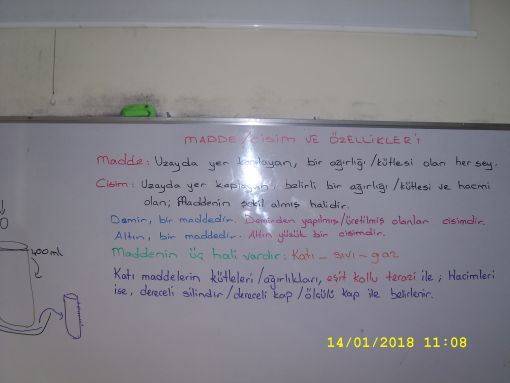 MADDE / CİSİM VE ÖZELLİKLERİ
Madde: Uzayda yer kaplayan, bir ağırlığı/kütlesi olan her şey.
Cisim: Uzayda yer kaplayan, belirli bir ağırlığı/kütlesi ve hacmi
olan; Maddenin şekil almış halidir.
Demir, bir maddedir. Demirden yapılmış/üretilmiş olanlar cisimdir.
Altın, bir maddedir. Altın yüzük bir cisimdir.
Maddenin üç hali vardır: Katı - sıvı - gaz
Katı maddelerin kütleleri/ağırlıkları, eşit kollu terazi ile; Hacimleri
ise, dereceli silindir/dereceli kap/ölçülü kap ile belirlenir.
400ml
14/01/2018 11:08